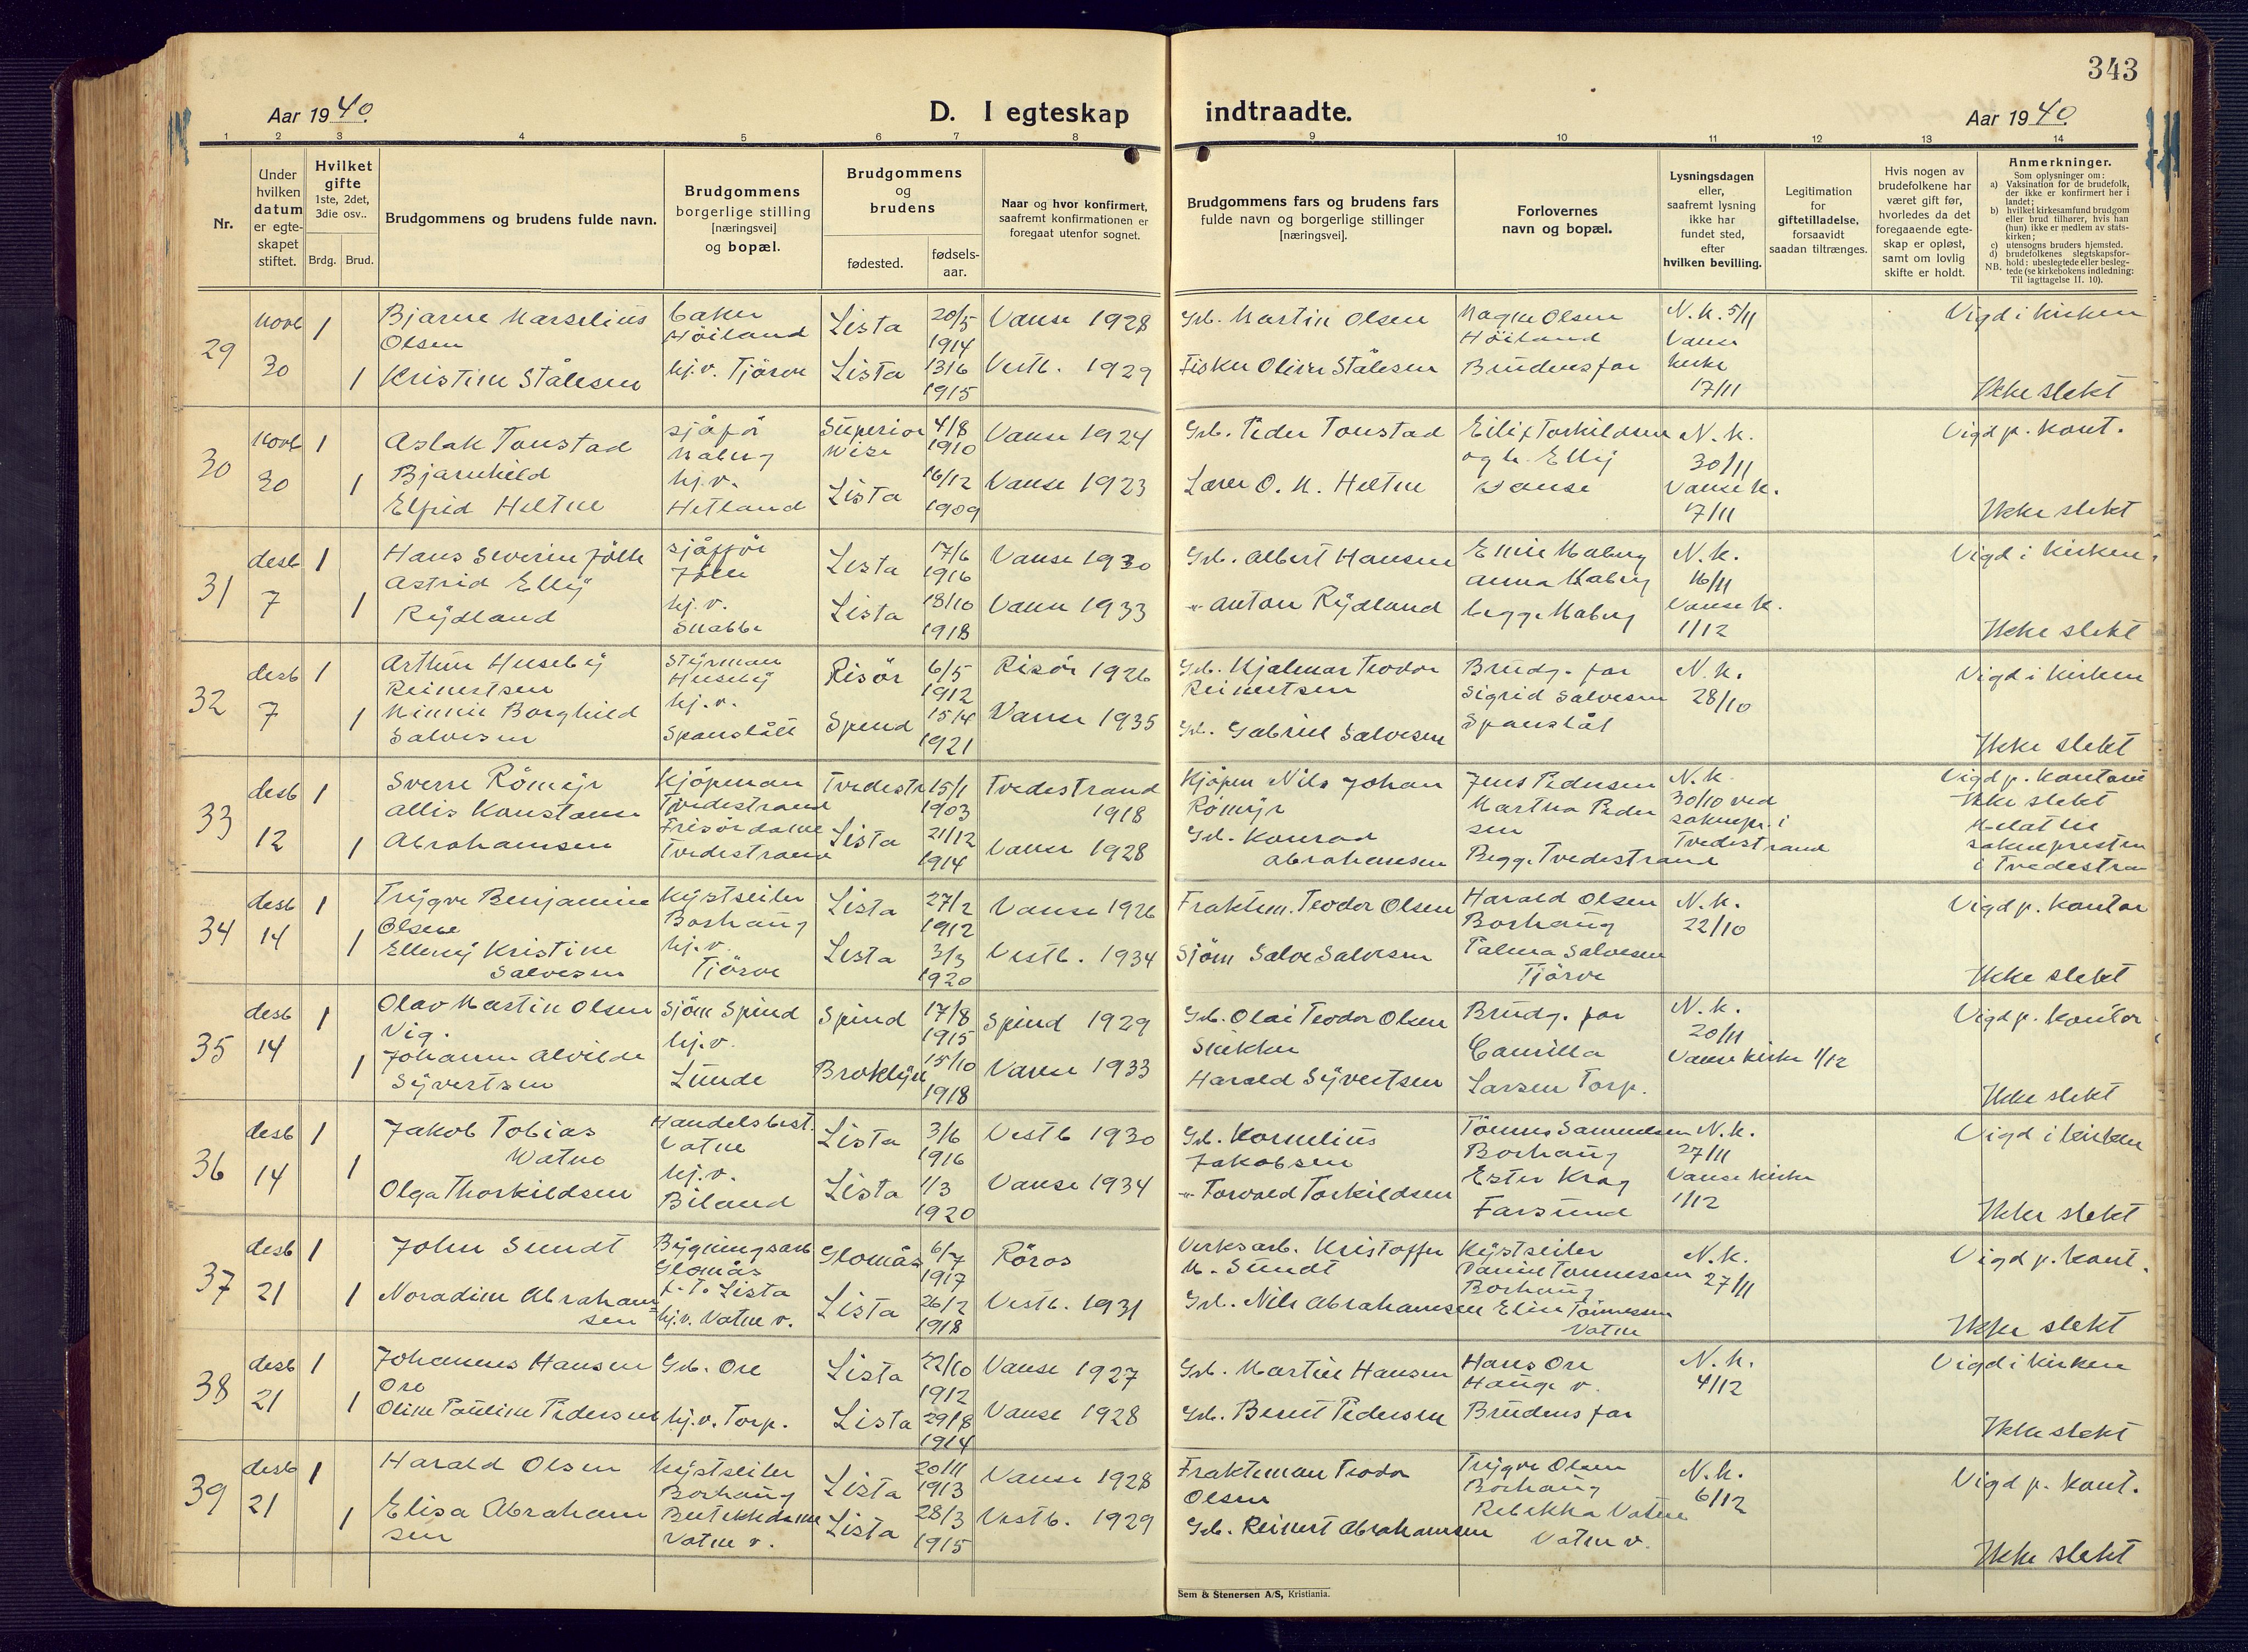 343
Aar 1940.
D. I egteskap indtraadte.
Aar 1940.
1 2 3 4 5 6 7 8 9 10 11 12 13 14
Nr.
Under hvilken datum er egte-skapet stiftet.
Hvilket gifte 1ste, 2det, 3die osv..
Brdg. Brud.
Brudgommens og brudens fulde navn.
Brudgommens borgerlige stilling [næringsvei] og bopæl.
Brudgommens og brudens
fødested.
fødsels-aar.
Naar og hvor konfirmert, saafremt konfirmationen er foregaat utenfor sognet.
Brudgommens fars og brudens fars fulde navn og borgerlige stillinger [næringsvei].
Forlovernes navn og bopæl.
Lysningsdagen eller, saafremt lysning ikke har fundet sted, efter hvilken bevilling.
Legitimation for giftetilladelse, forsaavidt saadan tiltrænges.
Hvis nogen av brudefolkene har været gift før, hvorledes da det foregaaende egte-skap er opløst, samt om lovlig skifte er holdt.
Anmerkninger.
Som oplysninger om:
a) Vaksination for de brudefolk, der ikke er konfirmert her i landet;
b) hvilket kirkesamfund brudgom eller brud tilhører, hvis han (hun) ikke er medlem av stats-kirken;
c) utensogns bruders hjemsted.
d) brudefolkenes slegtskapsfor-hold: ubeslegtede eller besleg-tede (se kirkebokens indledning: Til iagttagelse II. 10).
NB.
29 novb 30 1 Bjarne Marselius Olsen baker Höiland Lista 20/5 1914 Vanse 1928 Grb. Martin Olsen Magne Olsen Höiland N.k. 5/11 Vanse kirke 17/11 Vigd i kirken
1 Kristine Stålesen hj.v. Tjörve Lista 13/6 1915 Vestb. 1929 Fisker Oliver Stålesen Brudens far Ikke slekt
30 novb 30 1 Aslak Tonstad sjåför Maberg Superior Wisc 4/8 1910 Vanse 1924 Grb. Peder Tonstad Eilif Torkildsen og h. Elly Vanse N.k. 30/11 Vanse k. 7/11 Vigd p. kont.
1 Bjarnhild Elfrid Heltne hj.v. Hetland Lista 16/12 1909 Vanse 1923 Lærer O. M. Heltne Ikke slekt
31 desb 7 1 Hans Severin Jölle sjåfför Jölle Lista 17/6 1916 Vanse 1930 Grb. Albert Hansen Emil Maberg Anna Maberg begge Maberg N.k. 16/11 Vanse k. 1/12 Vigd i kirken.
1 Astrid Elly Rydland hj.v. Snabbe Lista 18/10 1918 Vanse 1933 " Anton Rydland Ikke slekt
32 desb 7 1 Arthur Huseby Reinertsen Styrman Huseby Risör 6/5 1912 Risör 1926 Grb. Hjalmar Teodor Reinertsen Brudg. far N.k. 28/10 Vigd i kirken
1 Minnie Borghild Salvesen hj.v. Spanslått Spind 15/4 1921 Vanse 1935 Grb. Gabriel Salvesen Sigrid Salvesen Spanslåt Ikke slekt
33 desb 12 1 Sverre Römyr Kjöpman Tvedestrand Tvedestr 15/1 1903 Tvedestrand 1918 Kjöpm Nils Johan Römyr Jens Pedersen N.k. 30/10 ved soknepr. i Tvedestrand Vigd p. kontoret
1 Allis Konstanse Abrahamsen Frisördame Tvedestrand Lista 21/12 1914 Vanse 1928 Grb. Konrad Abrahamsen Martha Pedersen Begge Tvedestrand Ikke slekt Melat til soknepresten i Tvedestran
34 desb 14 1 Trygve Benjamin Olsen Kystseiler Borhaug Lista 27/2 1912 Vanse 1926 Fraktem. Teodor Olsen Harald Olsen Borhaug N.k. 22/10 Vigd p. kontor
1 Elleny Kristine Salvesen hj.v. Tjörve Lista 3/3 1920 Vestb. 1934 Sjöm Salve Salvesen Palma Salvesen Tjörve Ikke slekt
35 desb 14 1 Olav Martin Olsen Vig. Sjöm Spind Spind 17/8 1915 Spind 1929 Grb. Olai Teodor Olsen Brudg. far N.k. 20/11 Vanse kirke 1/12 Vigd p. kontor
1 Johanne Alvilde Syvertsen hj.v. Lunde Broklyn 15/10 1918 Vanse 1933 Snekker Harald Syvertsen Camilla Larsen Torp. Ikke slekt
36 desb 14 1 Jakob Tobias Watne Handelsbest. Vatne Lista 3/6 1916 Vestb 1930 Grb. Kornelius Jakobsen Tönnes Samuelsen Borhaug N.k. 27/11 Vanse kirke 1/12 Vigd i kirken
1 Olga Thorkildsen hj.v. Biland Lista 1/3 1920 Vanse 1934 " Torvald Torkildsen Ester Krag Farsund Ikke slekt
37 desb 21 1 John Sundt Bygningsarb Glomås f.T. Lista Glomås 6/7 1917 Röros Verksarb. Kristoffer M. Sundt Kystseiler Daniel Tönnessen Borhaug N.k. 27/11 Vigd p. kont.
1 Noradine Abrahamsen hj.v. Vatne v. Lista 26/2 1918 Vestb. 1931 Grb. Nils Abrahamsen Elin Tönnessen Vatne Ikke slekt
38 desb 21 1 Johannes Hansen Ore Grb. Ore Lista 22/10 1912 Vanse 1927 Grb. Martin Hansen Hans Ore Hauge v. N.k. 4/12 Vigd i kirken
1 Oline Pauline Pedersen hj.v. Torp. Lista 29/8 1914 Vanse 1928 Grb. Bernt Pedersen Brudens far Ikke slekt
39 desb 21 1 Harald Olsen Kystseiler Borhaug Lista 20/11 1913 Vanse 1928 Frakteman Teodor Olsen Trygve Olsen Borhaug N.k. 6/12 Vigd p. kont.
1 Elisa Abrahamsen Butikkdame Vatne v. Lista 28/3 1915 Vestb. 1929 Grb. Reinert Abrahamsen Rebekka Vatne Vatne v. Ikke slekt
Sem & Stenersen A/S, Kristiania.